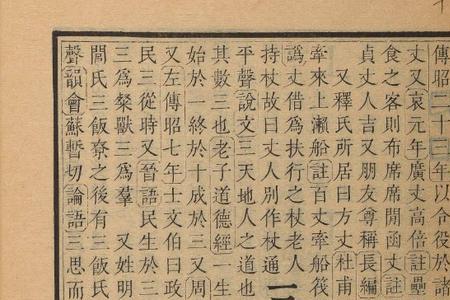 傳昭二十三年以令役於諸
丈又哀元年廣丈高倍註壘
食之客則布席席閒函丈註
貞丈人吉又朋友尊稱長編
又釋氏所居曰方丈杜甫
牽來上瀨船註百丈牽船筏
譌丈借爲扶行之杖老人
持杖故曰丈人別作杖通
平聲說文三天地人之道也
其數三也老子道德經一生
始於一終於十成於三又周
又左傳昭七年士文伯曰政
民三從時又晉語民生於三
三爲粲獸三爲羣 又姓明
閭氏三飯尞之後有三飯氏
聲韻會蘇暫切論語三思而